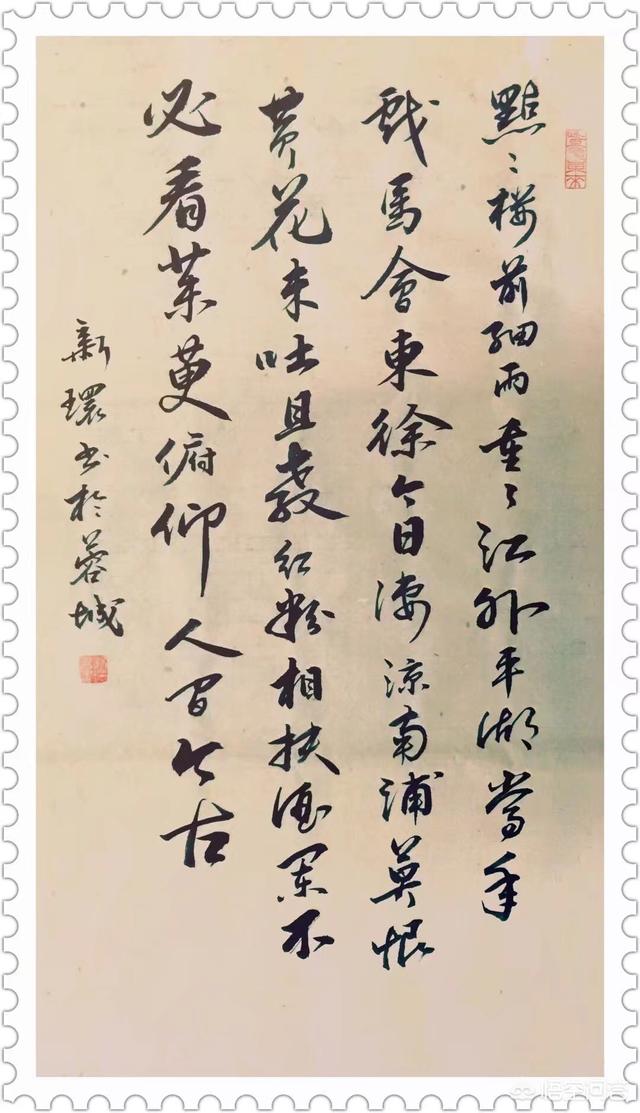 點〻樓前細雨重〻江外平湖當年
戲馬會東徐今日淒涼南浦莫恨
黄花未吐且教紅粉相扶酒闌不
必看茱萸俯仰人间今古
新環书於蓉城
悟空问答